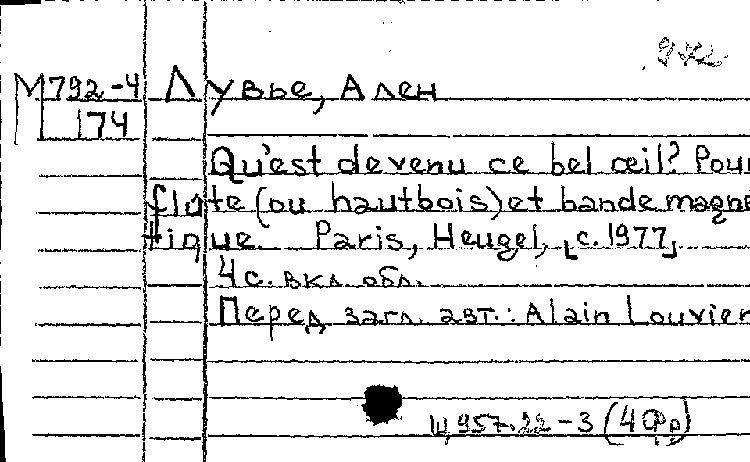 972
М792-4 Лувье, Ален
174
Qu'est devenu ce bel œil? Pour
flute (ou hautbois) et bande magne
tique. Paris, Heugel, [c. 1977].
4 с. вкл. обл.
Перед загл. авт.: Alain Louvier
Щ957.22-3 (4Фр)